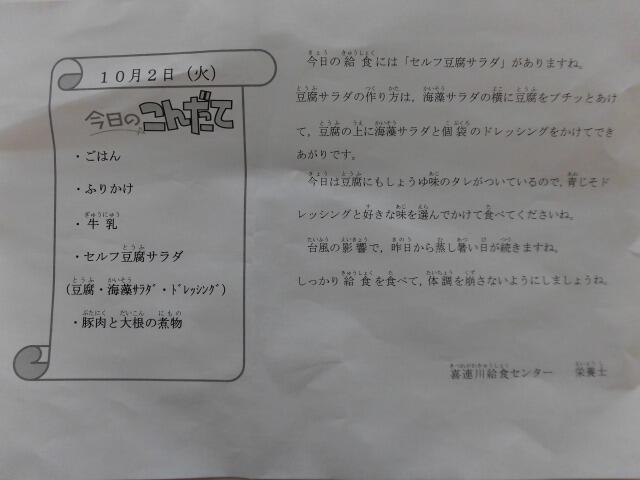 10月2日（火）
今日のこんだて
・ごはん
・ふりかけ
・牛乳
・セルフ豆腐サラダ
(豆腐・海藻ｻﾗﾀﾞ・ﾄﾞﾚｯｼﾝｸﾞ)
・豚肉と大根の煮物
今日の給食には「セルフ豆腐サラダ」がありますね。
豆腐サラダの作り方は，海藻サラダの横に豆腐をプチッとあけ
て，豆腐の上に海藻サラダと個袋のドレッシングをかけてでき
あがりです。
今日は豆腐にもしょうゆ味のタレがついているので，青じそド
レッシングと好きな味を選んでかけて食べてくださいね。
台風の影響で，昨日から蒸し暑い日が続きますね。
しっかり給食を食べて，体調を崩さないようにしましょうね。
喜連川給食センター　栄養士